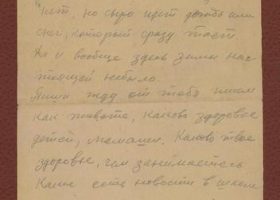 нет, но сыро идет дождь или
снег, который сразу тает.
Да и вообще здесь зимы нас-
тоящей не было.
Пиши жду от тебя писем
как живёте, каково здоровье
детей, мамаши. Каково твое
здоровье, чем занимаетесь
Какие есть новости в нашем